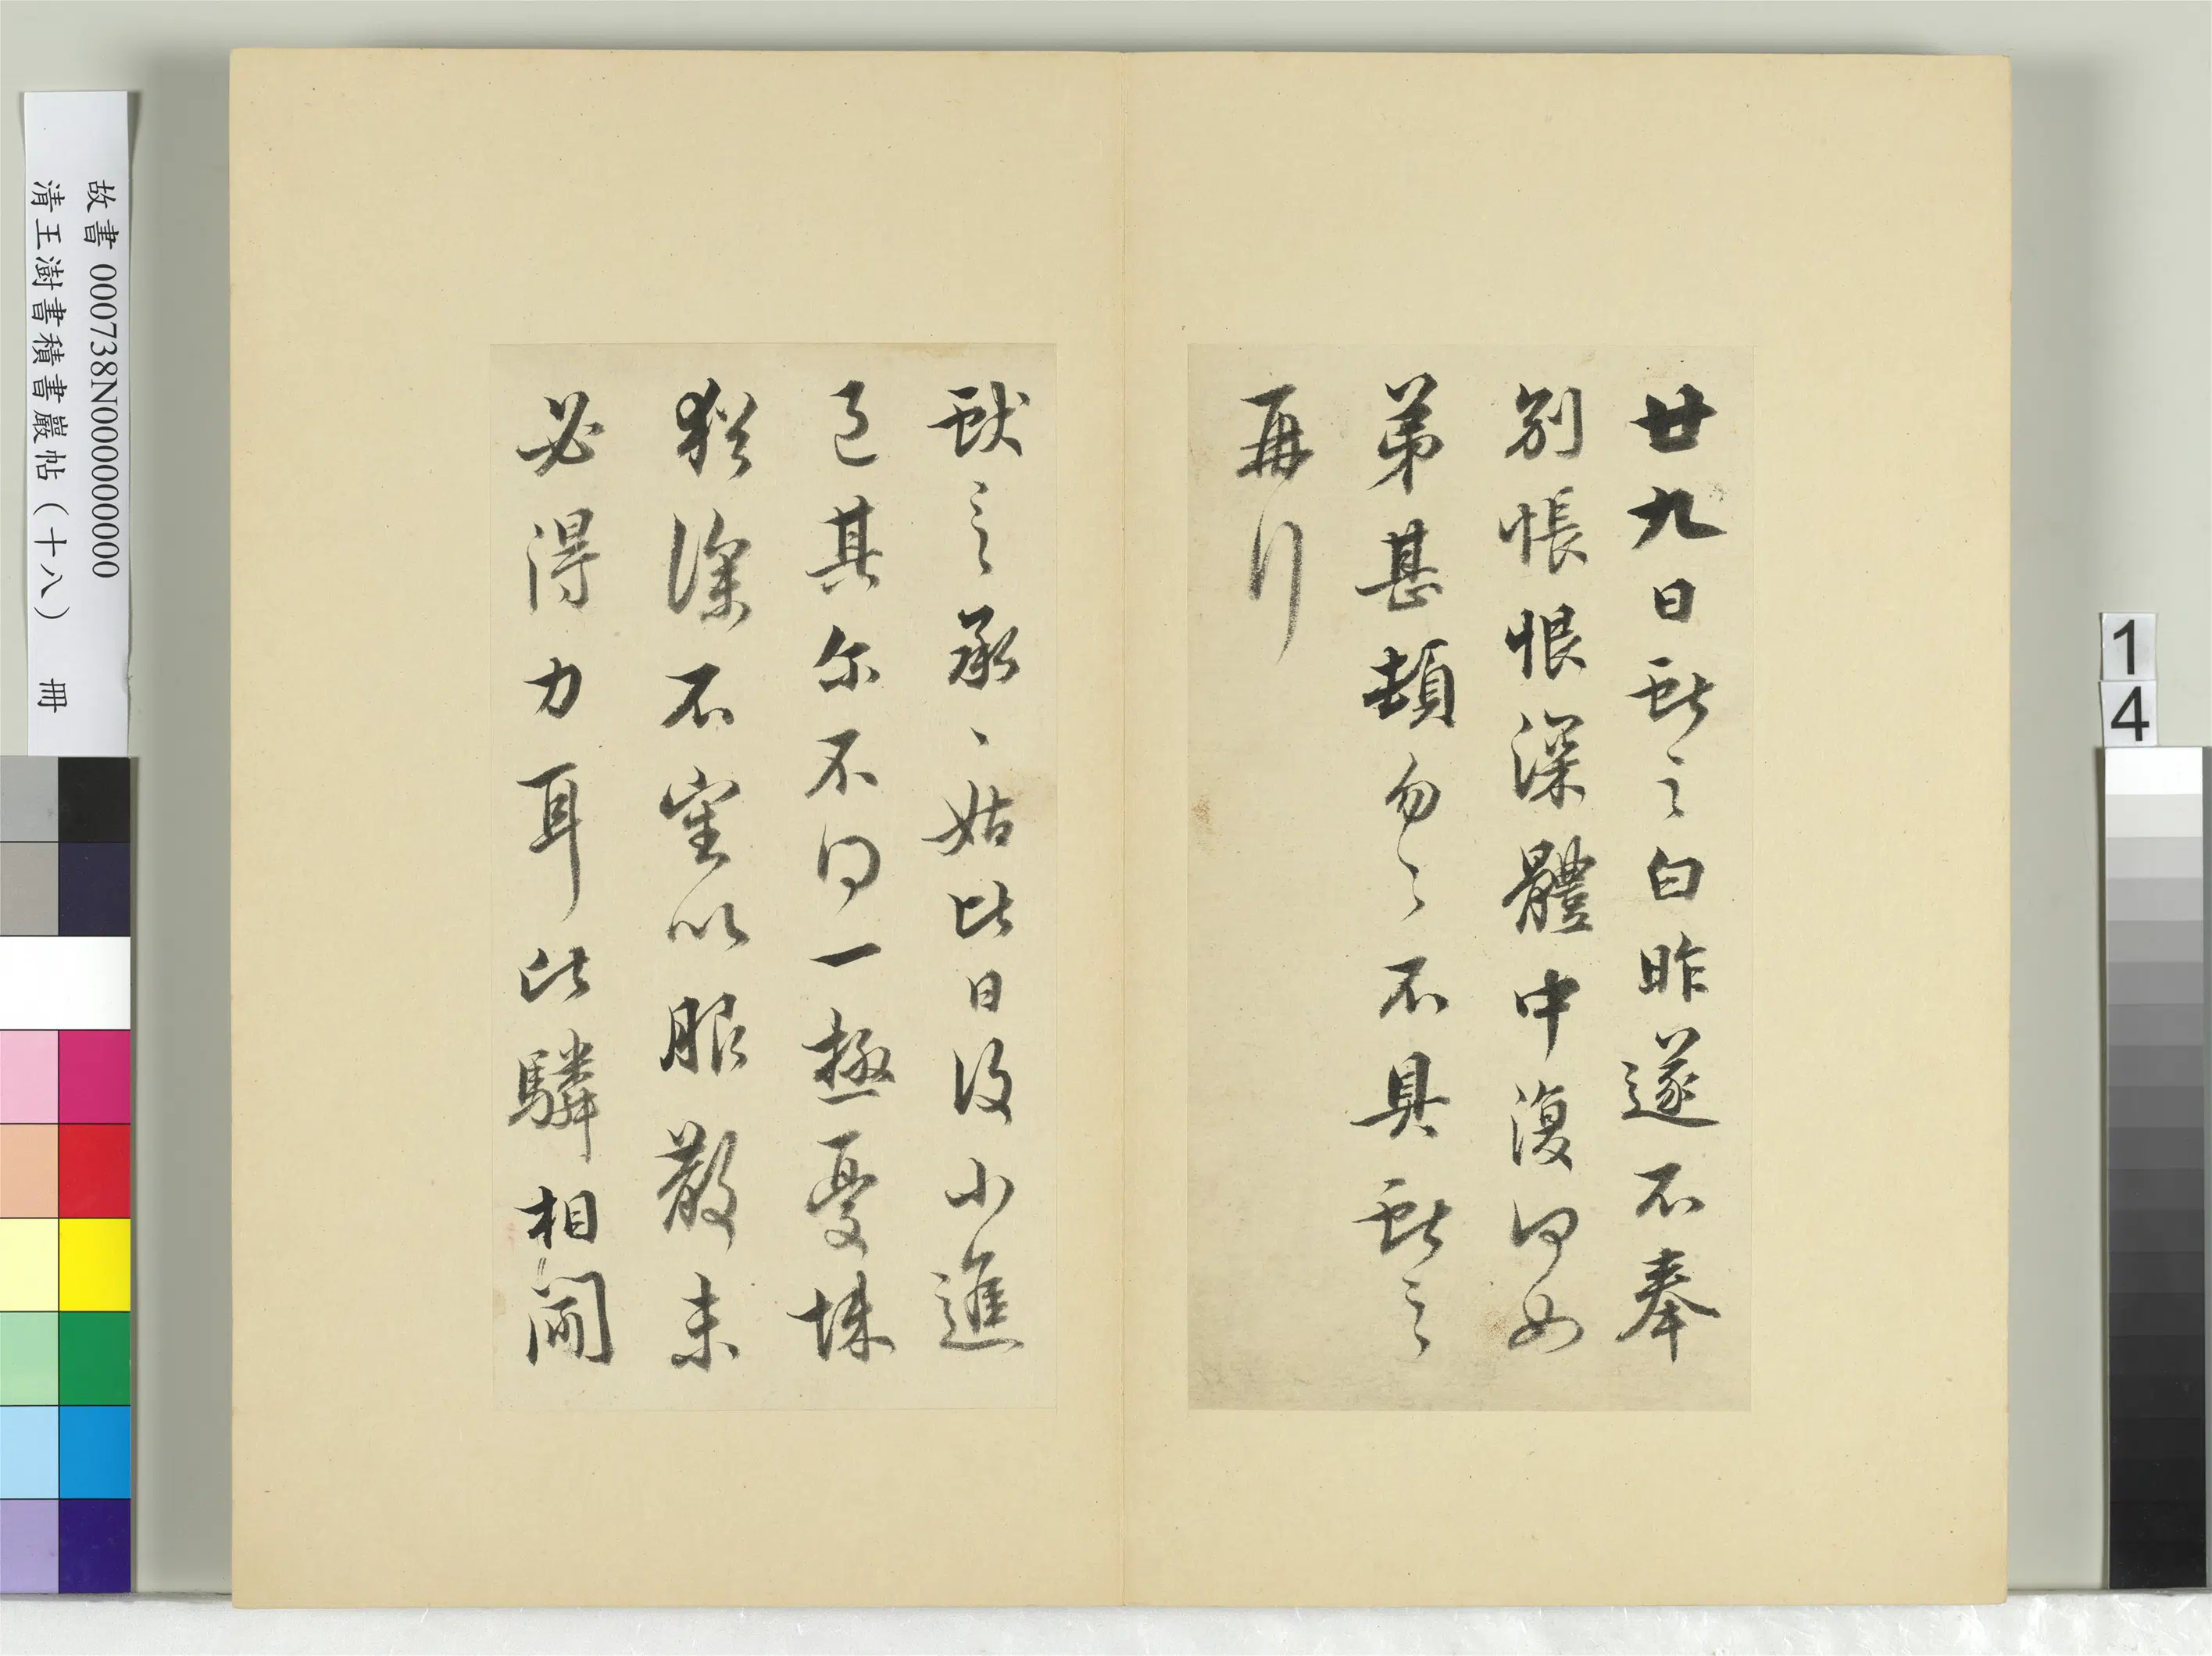 廿九日獻之白昨遂不奉
別悵恨深體中復何如
弟甚頓勿々不具獻之
再行
獻之承、姑比日復小進
退其尔不可一極憂悚
猶深不審以服散未
必得力耳比驎相聞
故書 000738N000000000
清王澍書積書巖帖（十八） 冊
14